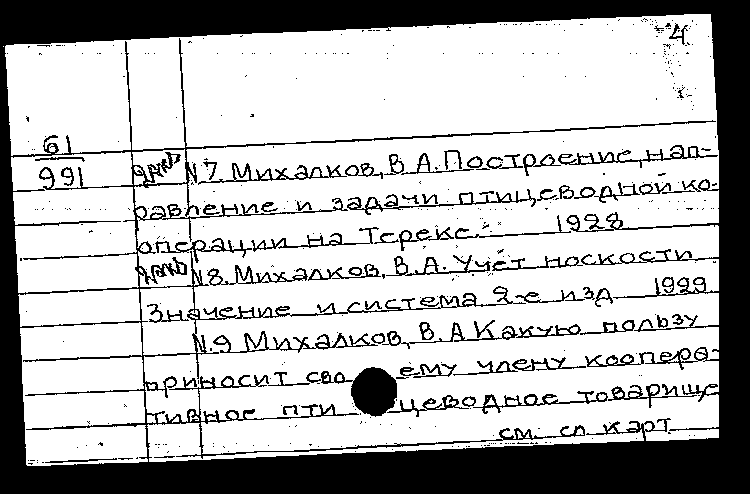 4
61
991 N 7. Михалков, В.А. Построение, нап-
равление и задачи птицеводной ко-
операции на Тереке. 1928
N 8. Михалков, В.А. Учет носкости
Значение и система 2-е изд 1929
N. 9 Михалков, В.А Какую пользу
приносит своему члену коопера-
тивное птицеводное товарище
см. сл карт